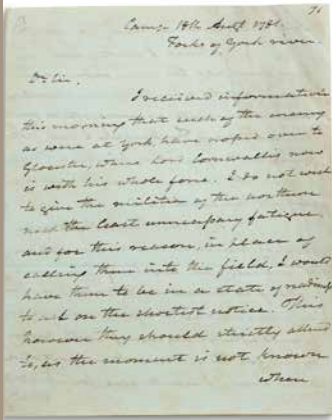 Camp 18th Augt 1781.
Forks of York river.
Dr Sir.
I received information
this morning that such of the enemy
as were at York, have passed over to
Gloucster, where Lord Cornwallis now
is with his whole force. I do not wish
to give the militia of the northern
neck the least unnecessary fatigue
and for this reason, in place of
calling them into the field, I would
have them to be in a state of readiness
to act on the shortest notice. This
however they should strictly attend
to, as the moment is not known
when